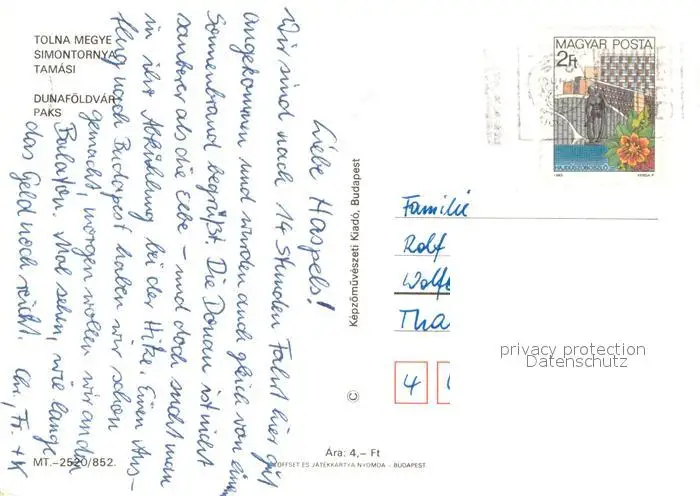 TOLNA MEGYE
SIMONTORNYA
TAMÁSI
DUNAFÖLDVÁR
PAKS
Liebe Haspels!
Wir sind nach 14 Stunden Fahrt hier gut
angekommen und wurden auch gleich von einem
Sonnenbrand begrüßt. Die Donau ist nicht
sauberer als die Elbe - und doch sucht man
in ihr Abkühlung bei der Hitze. Einen Aus-
flug nach Budapest haben wir schon
gemacht, morgen wollen wir an den
Balaton. Mal sehen, wie lange
das Geld noch reicht. Chr., Fr. + K
MT.–2520/852.
Képzőművészeti Kiadó, Budapest
©
MAGYAR POSTA
2Ft
HAJDÚSZOBOSZLÓ
1983
Familie
Rolf
Wolfe
Tha
4
privacy protection
Datenschutz
Ára: 4,– Ft
OFFSET ÉS JÁTÉKKÁRTYA NYOMDA - BUDAPEST